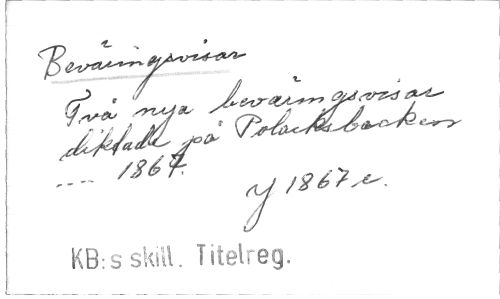 Beväringsvisor
Två nya beväringsvisor
diktade på Polacksbacken
---- 1867.
Y 1867 c.
KB:s skill. Titelreg.